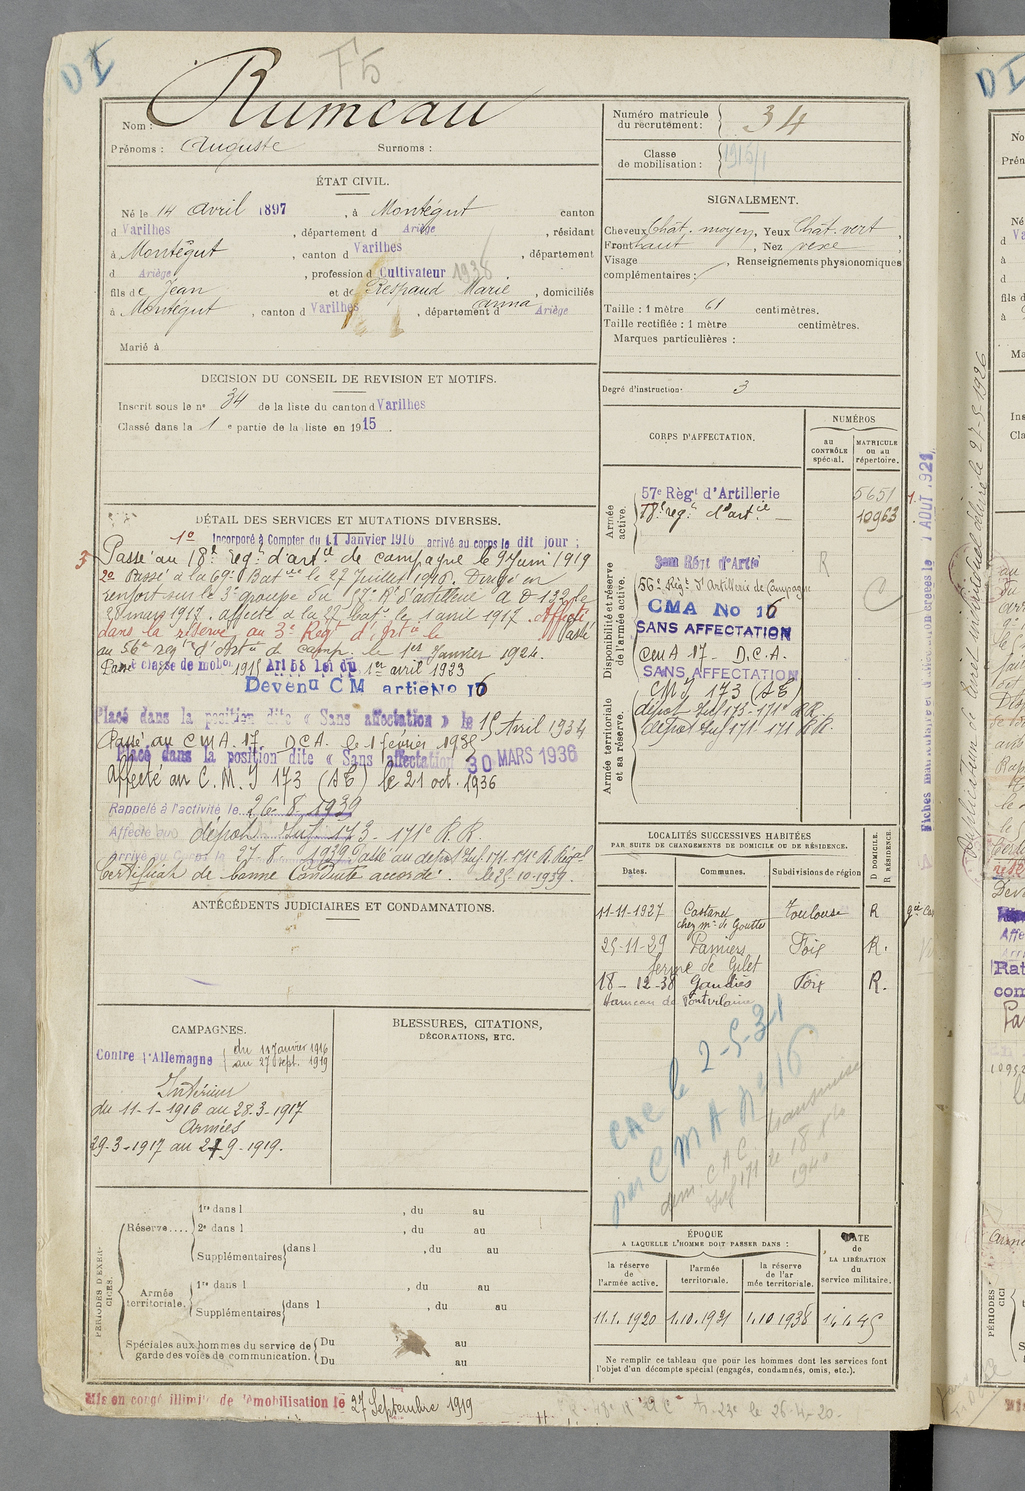 D I
F5
Nom : Rumeau
Prénoms : Auguste Surnoms :
Numéro matricule du recrutement : 34
Classe de mobilisation : 1915/1
ÉTAT CIVIL.
Né le 14 avril 1897, à Montégut canton
d Varilhes, département d Ariège, résidant
à Montégut, canton d Varilhes, département
d Ariège, profession d Cultivateur 1938
fils de Jean et de Respaud Marie Anna, domiciliés
à Montégut, canton d Varilhes, département d Ariège
Marié à
SIGNALEMENT.
Cheveux Chât. moyen, Yeux Chât. vert,
Front haut, Nez vexe
Visage , Renseignements physionomiques
complémentaires :
Taille : 1 mètre 61 centimètres.
Taille rectifiée : 1 mètre centimètres.
Marques particulières :
Degré d'instruction : 3
DECISION DU CONSEIL DE REVISION ET MOTIFS.
Inscrit sous le n° 34 de la liste du canton d Varilhes
Classé dans la 1 e partie de la liste en 1915.
CORPS D'AFFECTATION.
NUMÉROS
au CONTRÔLE spécial.
MATRICULE ou au répertoire.
Armée active.
57e Régt d'Artillerie 5651
18e regt d'artie 10963
Disponibilité et réserve de l'armée active.
3em Régt d'Artie R
56e Regt d'Artillerie de Campagne
CMA No 16
SANS AFFECTATION
CMA 17 - D.C.A.
SANS AFFECTATION
Armée territoriale et sa réserve.
CMI 173 (AE)
dépôt Inf 173-171e RR
dépôt Inf 171. 171 RR.
DÉTAIL DES SERVICES ET MUTATIONS DIVERSES.
1° Incorporé à Compter du 11 Janvier 1916 arrivé au corps le dit jour :
3° Passé au 18e regt d'artie de campagne le 9 Juin 1919
2° Passé à la 69e Batie le 27 Juillet 1916. Dirigé en
renfort sur le 3e groupe du 57e R d'artillerie A D 132 le
28 mars 1917. affecté à la 27e bat. le 1 avril 1917. Affecté
dans la réserve au 3e Régt d'Artie le Passé
au 56e regt d'Artie de camp. le 1er Janvier 1924.
Passé classe de mob. 1915 Art 58 Loi du 1er avril 1923
Devenu CM artie No 16
Placé dans la position dite « Sans affectation » le 15 Avril 1934
Passé au CMA. 17. D.C.A. le 1 février 1935
Placé dans la position dite « Sans affectation 30 MARS 1936
Affecté au C.M.I 173 (AE) le 21 oct. 1936
Rappelé à l'activité le 26-8-1939
Affecté au dépôt Inf 173 - 171e R.R.
Arrivé au Corps le 27 8 1939 Passé au dépôt Inf 171-171e R. Régal
Certificat de bonne Conduite accordé. le 25-10-1939.
Fiches matriculaire et d'affection créées le 1 AOUT 1921
ANTÉCÉDENTS JUDICIAIRES ET CONDAMNATIONS.
LOCALITÉS SUCCESSIVES HABITÉES
PAR SUITE DE CHANGEMENTS DE DOMICILE OU DE RÉSIDENCE.
Dates. Communes. Subdivisions de région
D DOMICILE. R RÉSIDENCE.
11-11-1927 Castanet Toulouse R
chez Mr de Goutte
25-11-29 Pamiers Foix R.
ferme de Gilet
18-12-38 Gaudiès Foix R.
Hameau de
CAC le 2-5-31
par CMA N° 16
CAMPAGNES.
Contre l'Allemagne { du 11 Janvier 1916
au 27 Sept. 1919
Intérieur
du 11-1-1916 au 28-3-1917
Armées
29-3-1917 au 27 9-1919.
BLESSURES, CITATIONS, DÉCORATIONS, ETC.
dem. CAC transmise
Inf 171 le 18 1940
PÉRIODES D'EXERCICES.
Réserve.... 1re dans l , du au
2e dans l , du au
Supplémentaires dans l , du au
Armée territoriale. 1re dans l , du au
Supplémentaires dans l , du au
Spéciales aux hommes du service de garde des voies de communication. Du au
Du au
ÉPOQUE
A LAQUELLE L'HOMME DOIT PASSER DANS :
la réserve de l'armée active.
l'armée territoriale.
la réserve de l'armée territoriale.
DATE de LA LIBÉRATION du service militaire.
11.1.1920 1.10.1921 1.10.1938 14.4.45
Ne remplir ce tableau que pour les hommes dont les services font
l'objet d'un décompte spécial (engagés, condamnés, omis, etc.).
Mis en congé illimité de démobilisation le 27 Septembre 1919
D I
Duplication de livret individuel délivré le 27-5-1926